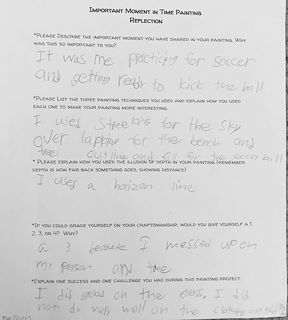 Important Moment in Time Painting
Reflection
*Please Describe the important moment you have shared in your painting. Why
was this so important to you?
It was me practicing for soccer
and getting ready to kick the ball
*Please List the three painting techniques you used and explain how you used
each one to make your painting more interesting.
I used streaking for the sky
over lapping for the bench and
tree outline and fill for the soccer ball
* Please explain how you used the illusion of depth in your painting (remember
depth is how far back something goes, showing distance)
I use a horizon line
*If you could grade yourself on your craftsmanship, would you give yourself a 1,
2, 3, or 4? Why?
a 3 because I messed up on
my person and the
*Explain one success and one challenge you had during this painting project.
I did good on the grass, I did
not do very well on the clothing
person